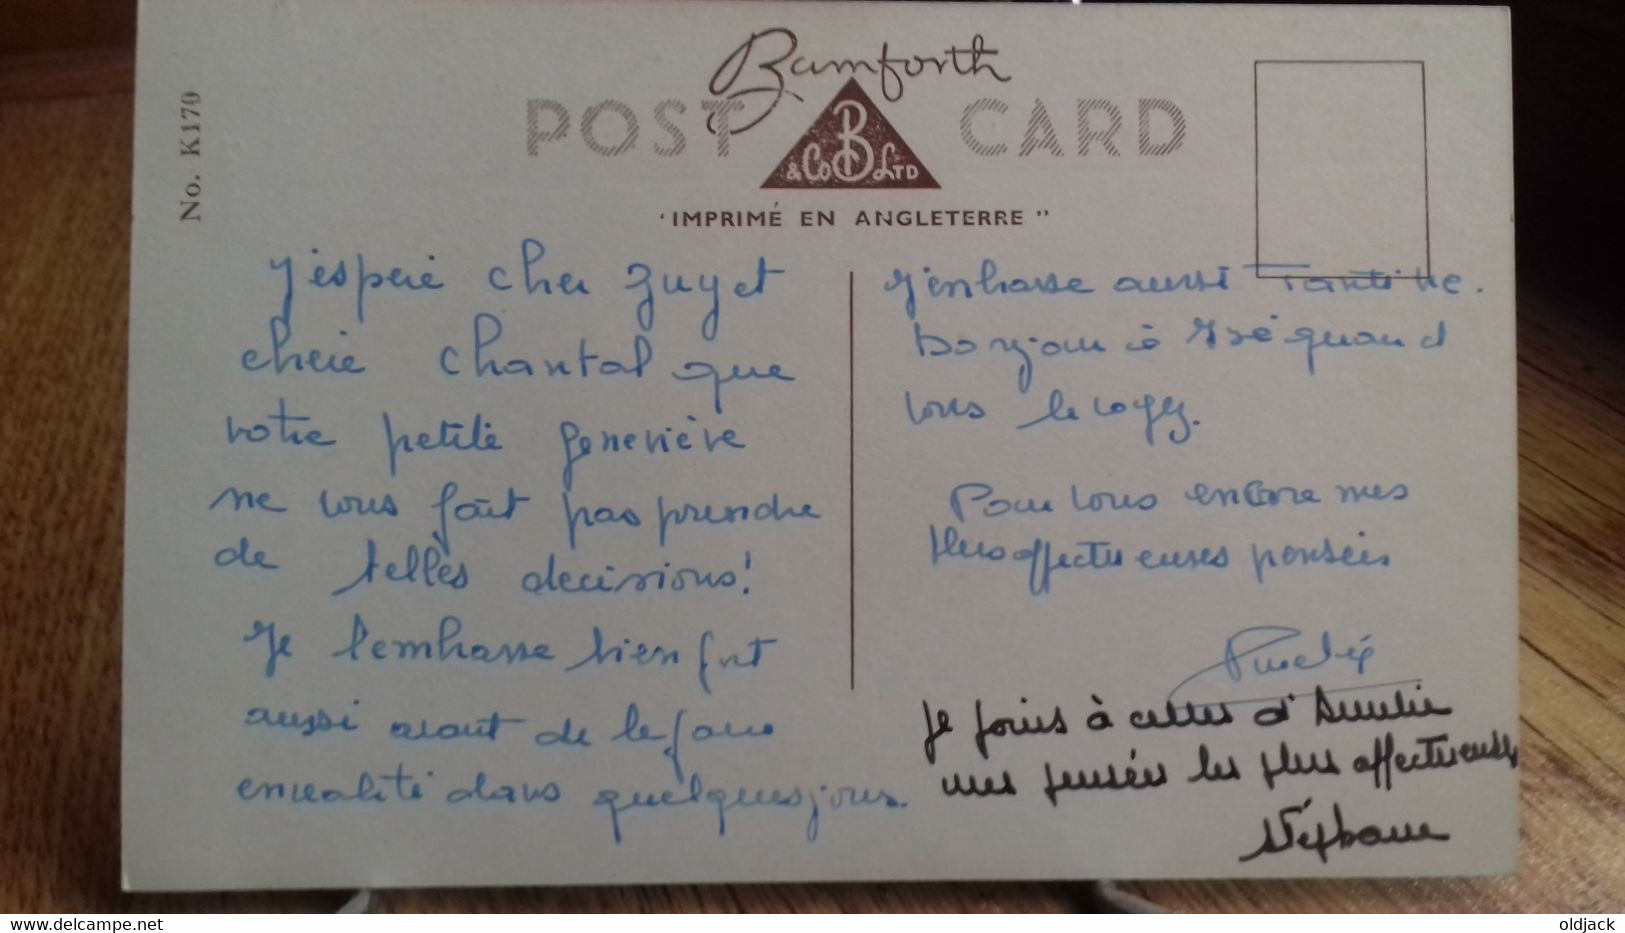 No. K170
Bamforth
POST CARD
& Co B LTD
'IMPRIMÉ EN ANGLETERRE"
J'espère cher Guy et
chérie Chantal que
votre petite Geneviève
ne vous fait pas prendre
de telles decisions!
Je l'embrasse bien fort
aussi avant de le faire
en réalité dans quelques jours.
J'embrasse aussi Tantine.
Bonjour à quand
vous le voyez.
Pour vous encore mes
plus affectueuses pensées
Je joins à celles d'Amélie
mes pensées les plus affectueuses
Stéphane
oldjack